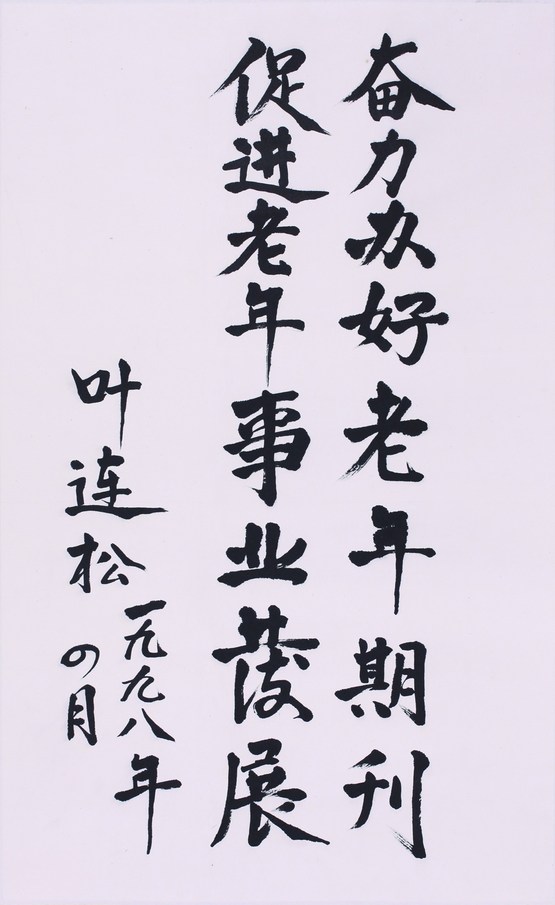 奋力办好老年期刊
促进老年事业发展
叶连松
一九九八年
四月